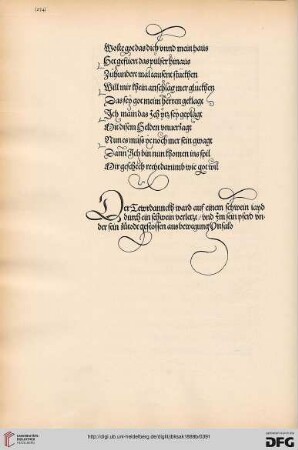 [274]
Wolte got das dich vnnd mein haus
Het gefuert das pulfer hinaus
Zuhundert mal tausent stuckhen
Will mir khein anschlag mer gluckhen
Das sey got mein herren geklagt
Ich main das Ich yn sey geplagt
Mit disem Helden vnuerzagt
Nun es muss ye noch mer sein gwagt
Dann Ich bin nun khomen ins spil
Mir geschech recht darumb wie got wil
Der Tewrdannckh ward auf einem schwein iayd
durch ein schwein verletzt / vnd Im sein pferd vn
der sein schwert gestossen aus bewegung Vnfalo
http://digi.ub.uni-heidelberg.de/diglit/jbksak1888b/0391
UNIVERSITÄTS-
BIBLIOTHEK
HEIDELBERG
DFG